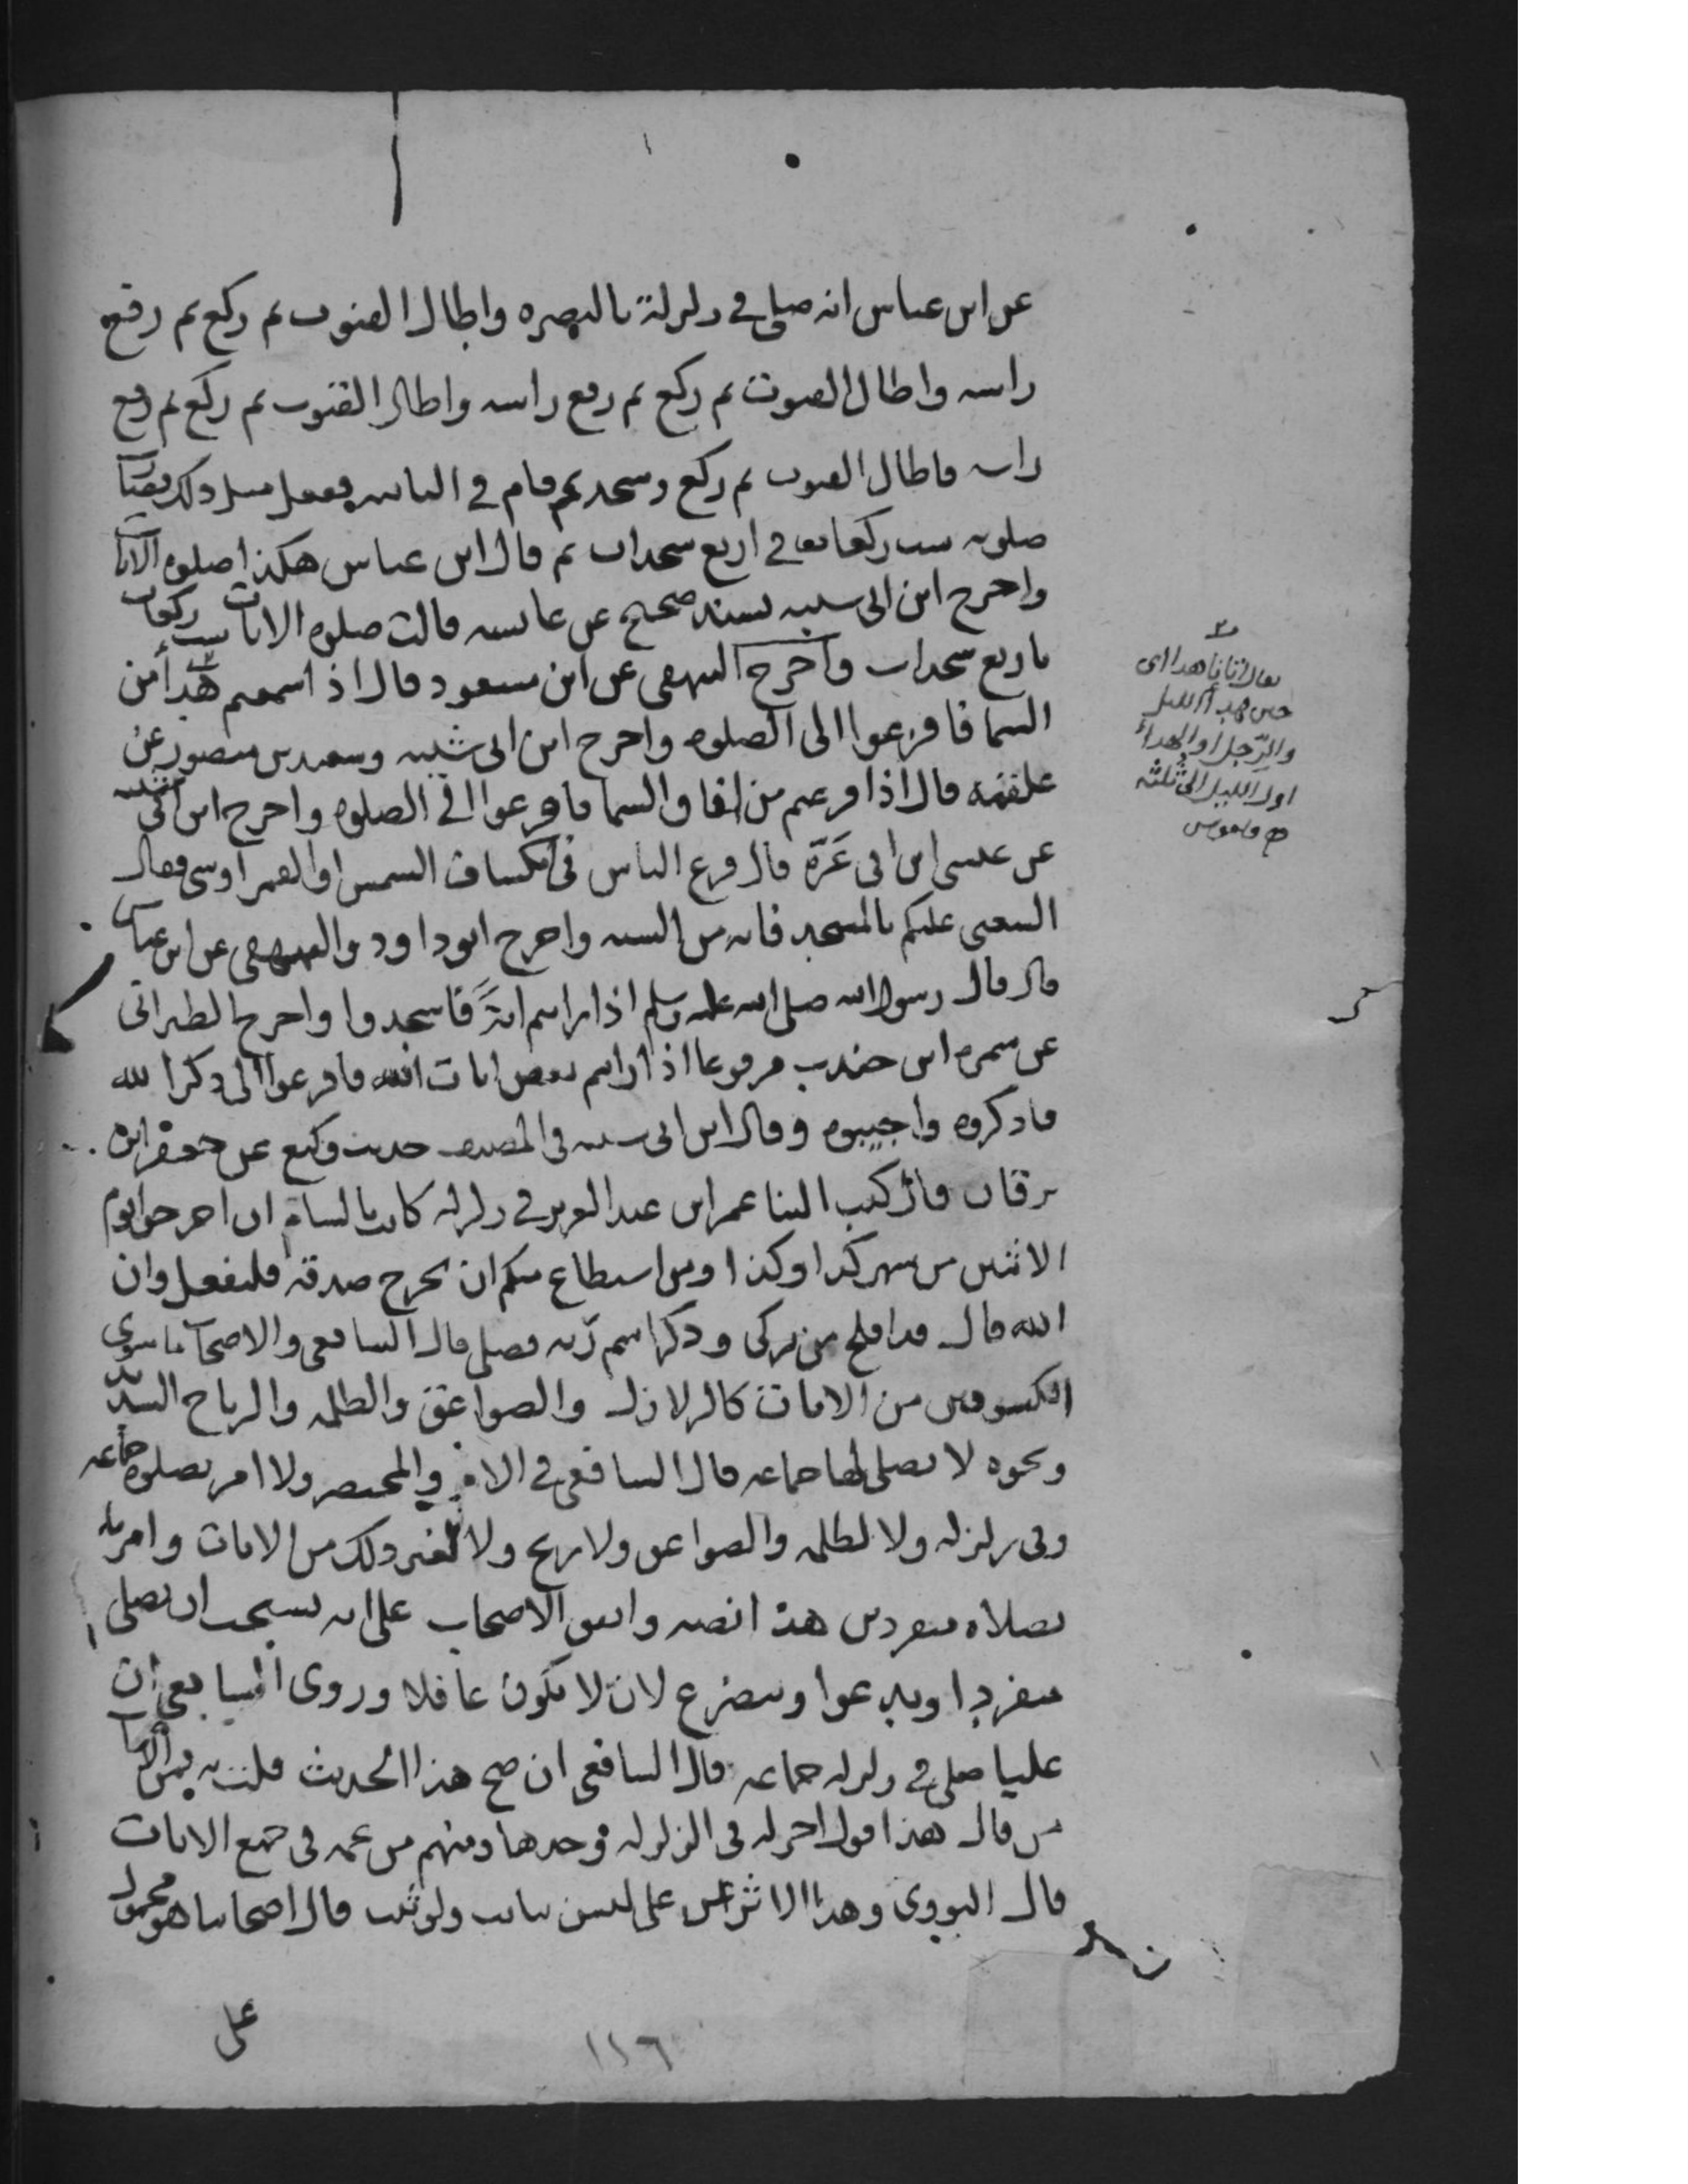 عن ابن عباس انه صلى في زلزلة بالبصره واطال القنوت ثم ركع ثم رفع
راسه واطال القنوت ثم ركع ثم رفع راسه واطال القنوت ثم ركع ثم رفع
راسه فاطال القنوت ثم ركع وسجد ثم قام في الثانيه ففعل مثل ذلك فصارت
صلوته ست ركعات في اربع سجدات ثم قال ابن عباس هكذا صلوه الايات
واخرج ابن ابى شيبه بسند صحيح عن عايشه قالت صلوه الايات ست ركعات
باربع سجدات واخرج البيهقى عن ابن مسعود قال اذا سمعتم هدأ من
السما فافزعوا الى الصلوه واخرج ابن ابى شيبه وسعيد بن منصور عن
علقمه قال اذا فزعتم من افاق السما فافزعوا الى الصلوه واخرج ابن ابى شيبه
عن عيسى ابن ابى عَزّة قال فزع الناس فى انكساف الشمس او القمر او شى فقال
الشعبى عليكم بالمسجد فانه من السنه واخرج ابو داود والبيهقى عن ابن عباس
قال قال رسول الله صلى الله عليه وسلم اذا رايتم ايةً فاسجدوا واخرج الطبرانى
عن سمره ابن جندب مرفوعا اذا رايتم بعض ايات الله فافزعوا الى ذكر الله
فاذكروه واجيبوه وقال ابن ابى شيبه فى المصنف حديث وكيع عن جعفر ابن
برقان قال كتب الينا عمر ابن عبد العزيز فى زلزله كانت بالشام ان اخرجوا يوم
الاثنين من شهر كذا وكذا ومن استطاع منكم ان يخرج صدقه فليفعل وان
الله قال قد افلح من تزكى وذكر اسم ربه فصلى قال الشافعى والاصحاب ما سوى
الكسوفين من الايات كالزلازل والصواعق والظلمه والرياح الشديده
ونحوه لا يصلى لها جماعه قال الشافعى في الام والمختصر ولا امر بصلوه جماعه
وفى زلزله ولا لظلمه والصواعق ولا ريح ولا لغير ذلك من الايات وامر
بصلاه منفردين هذا نصه واتفق الاصحاب على انه يستحب ان يصلى
منفردا ويدعوا ويتضرع لان لا يكون غافلا وروى الشافعى ان
عليا صلى في زلزله جماعه قال الشافعى ان صح هذا الحديث قلت به فمن الاصحاب
من قال هذا قول اخر له فى الزلزله وحدها ومنهم من عمه فى جميع الايات
قال النووى وهذا الاثر عن على ليس بثابت ولو ثبت قال اصحابنا هو محمول
على
يقال اتانا هدا اى
حين هدأ الليل
والرِّجل او الهدأ
اول الليل الى ثلثه
قاموس
١١٦